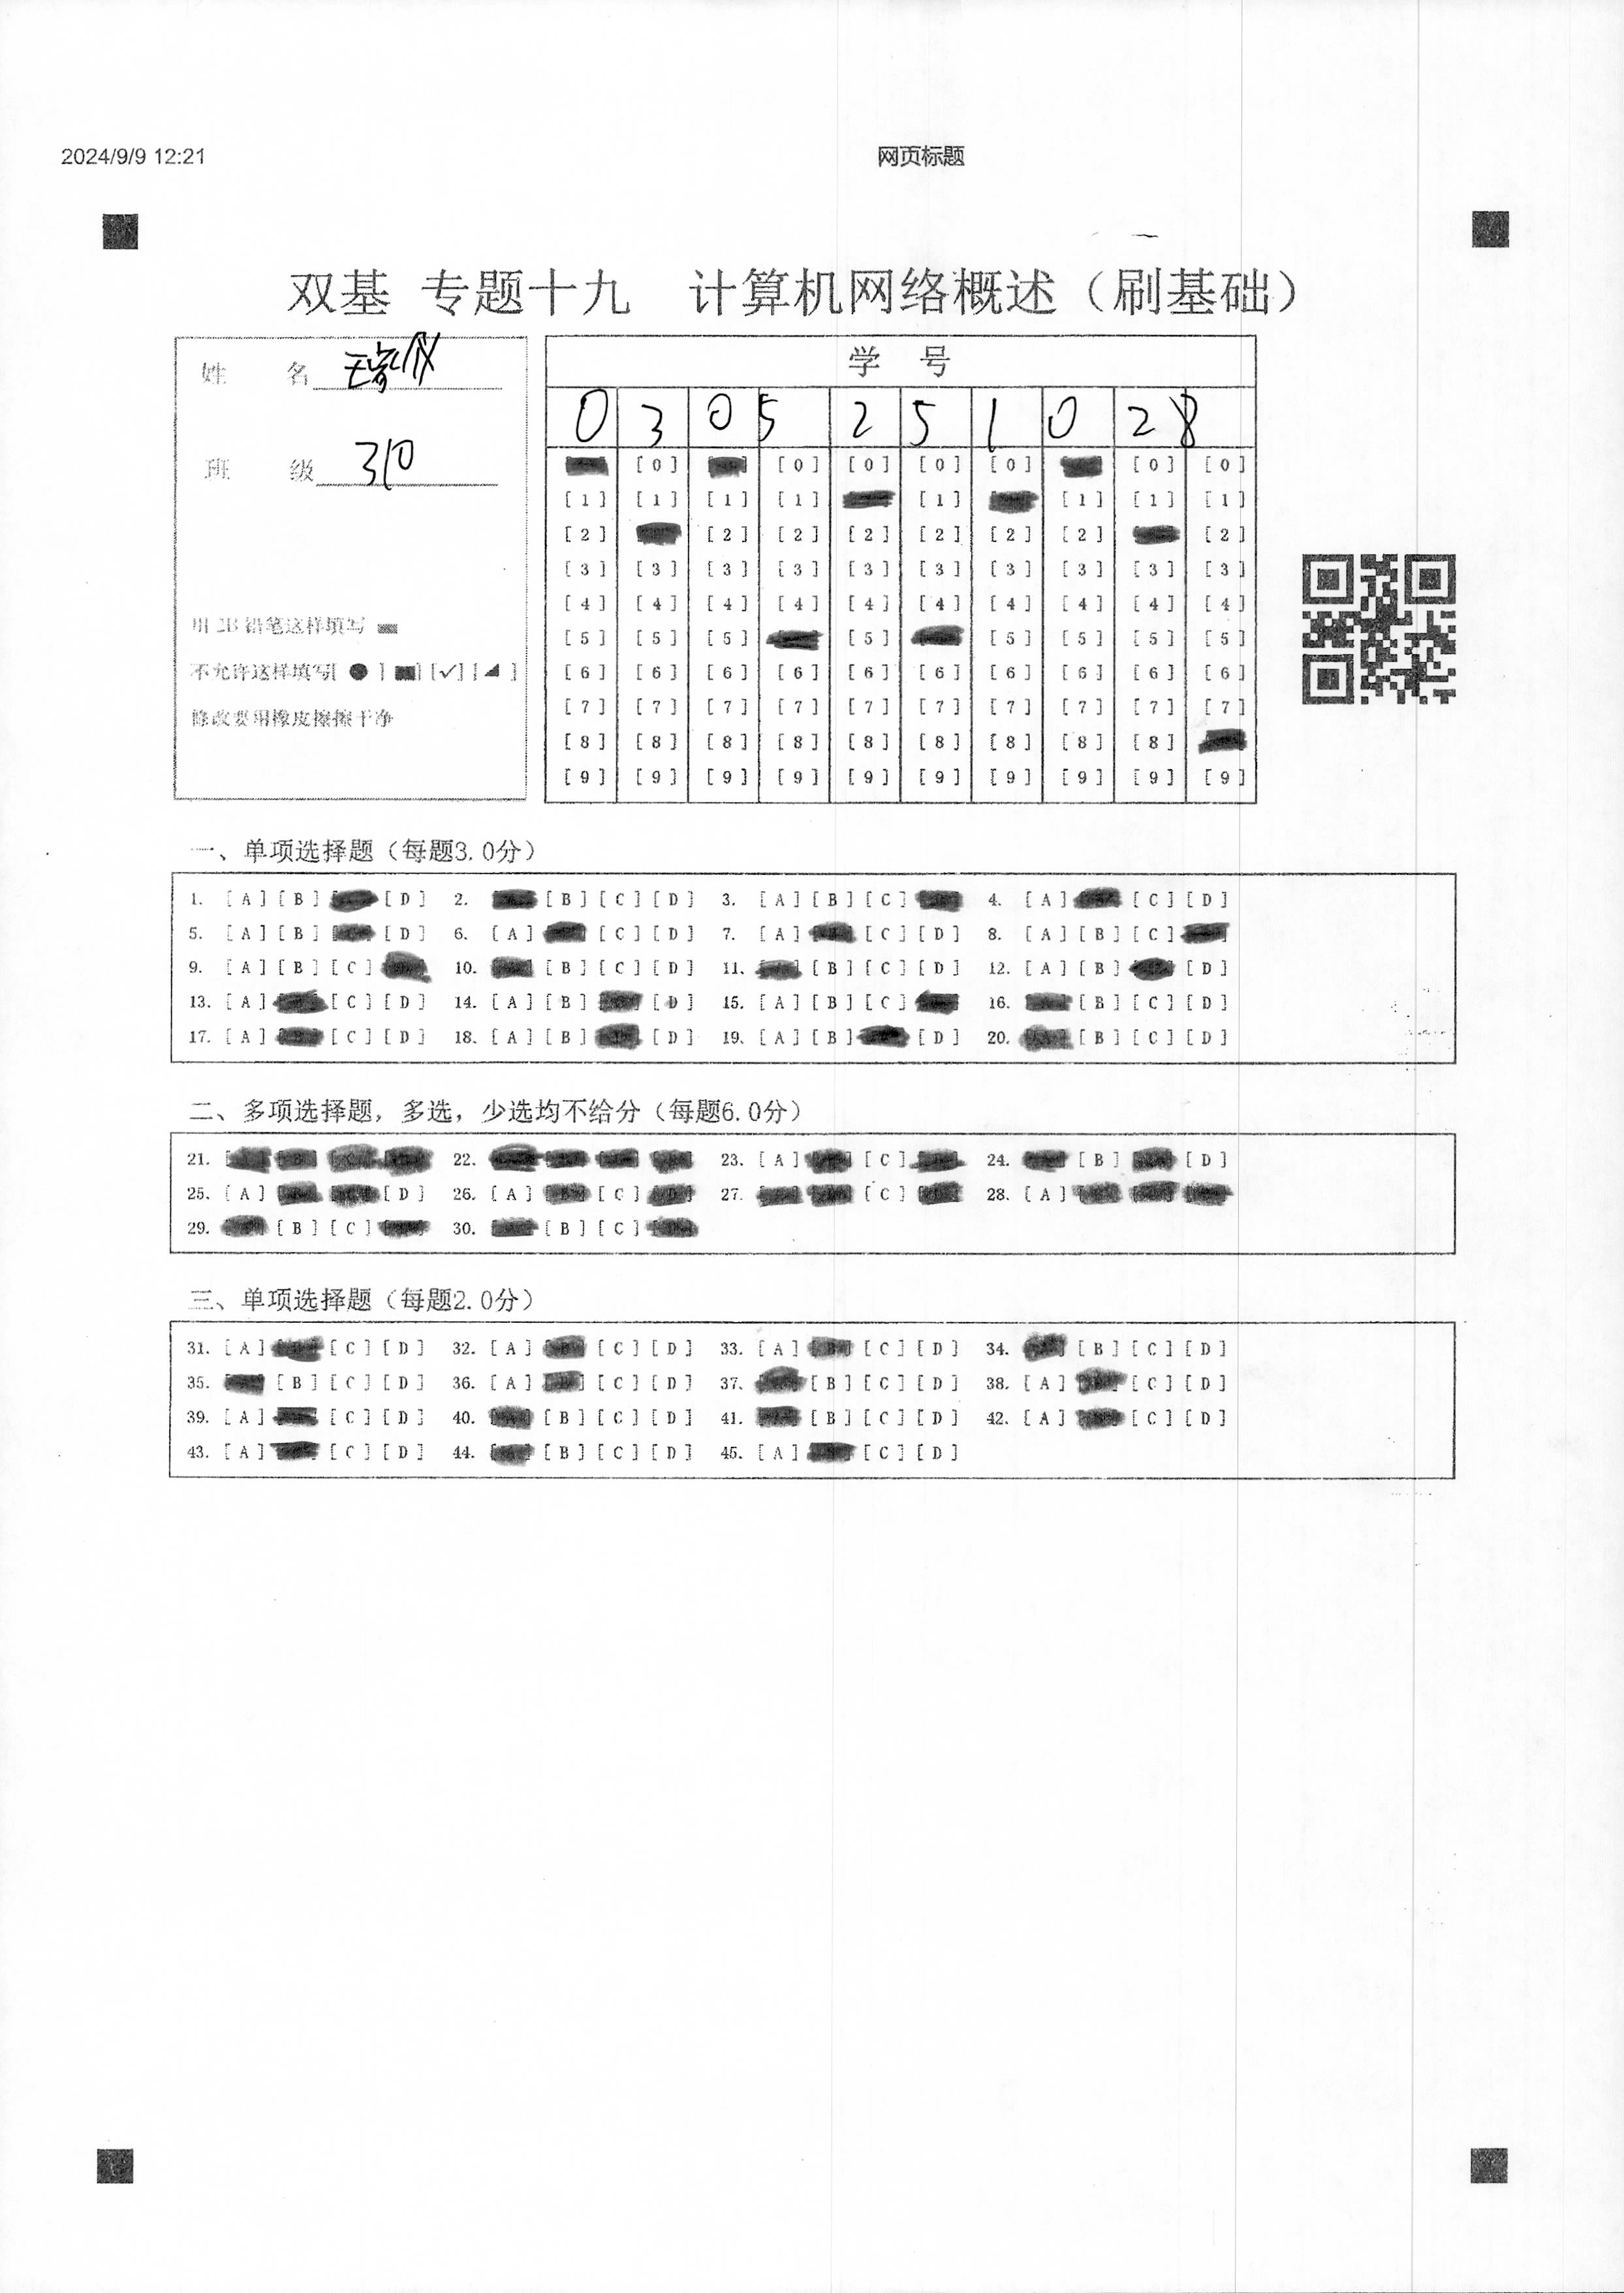 2024/9/9 12:21 网页标题
双基 专题十九 计算机网络概述（刷基础）
姓 名
班 级 310
用 2B 铅笔这样填写
不允许这样填写[ ● ] [■] [✓] [◢ ]
修改要用橡皮擦擦干净
学 号
0 3 0 5 2 5 1 0 2 8
[0] [0] [0] [0] [0] [0] [0]
[1] [1] [1] [1] [1] [1] [1] [1]
[2] [2] [2] [2] [2] [2] [2] [2]
[3] [3] [3] [3] [3] [3] [3] [3] [3] [3]
[4] [4] [4] [4] [4] [4] [4] [4] [4] [4]
[5] [5] [5] [5] [5] [5] [5] [5]
[6] [6] [6] [6] [6] [6] [6] [6] [6] [6]
[7] [7] [7] [7] [7] [7] [7] [7] [7] [7]
[8] [8] [8] [8] [8] [8] [8] [8] [8]
[9] [9] [9] [9] [9] [9] [9] [9] [9] [9]
一、单项选择题（每题3.0分）
1. [A] [B] [D] 2. [B] [C] [D] 3. [A] [B] [C] 4. [A] [C] [D]
5. [A] [B] [D] 6. [A] [C] [D] 7. [A] [C] [D] 8. [A] [B] [C]
9. [A] [B] [C] 10. [B] [C] [D] 11. [B] [C] [D] 12. [A] [B] [D]
13. [A] [C] [D] 14. [A] [B] [D] 15. [A] [B] [C] 16. [B] [C] [D]
17. [A] [C] [D] 18. [A] [B] [D] 19. [A] [B] [D] 20. [B] [C] [D]
二、多项选择题，多选，少选均不给分（每题6.0分）
21. 22. 23. [A] [C] 24. [B] [D]
25. [A] [D] 26. [A] [C] 27. [C] 28. [A]
29. [B] [C] 30. [B] [C]
三、单项选择题（每题2.0分）
31. [A] [C] [D] 32. [A] [C] [D] 33. [A] [C] [D] 34. [B] [C] [D]
35. [B] [C] [D] 36. [A] [C] [D] 37. [B] [C] [D] 38. [A] [C] [D]
39. [A] [C] [D] 40. [B] [C] [D] 41. [B] [C] [D] 42. [A] [C] [D]
43. [A] [C] [D] 44. [B] [C] [D] 45. [A] [C] [D]